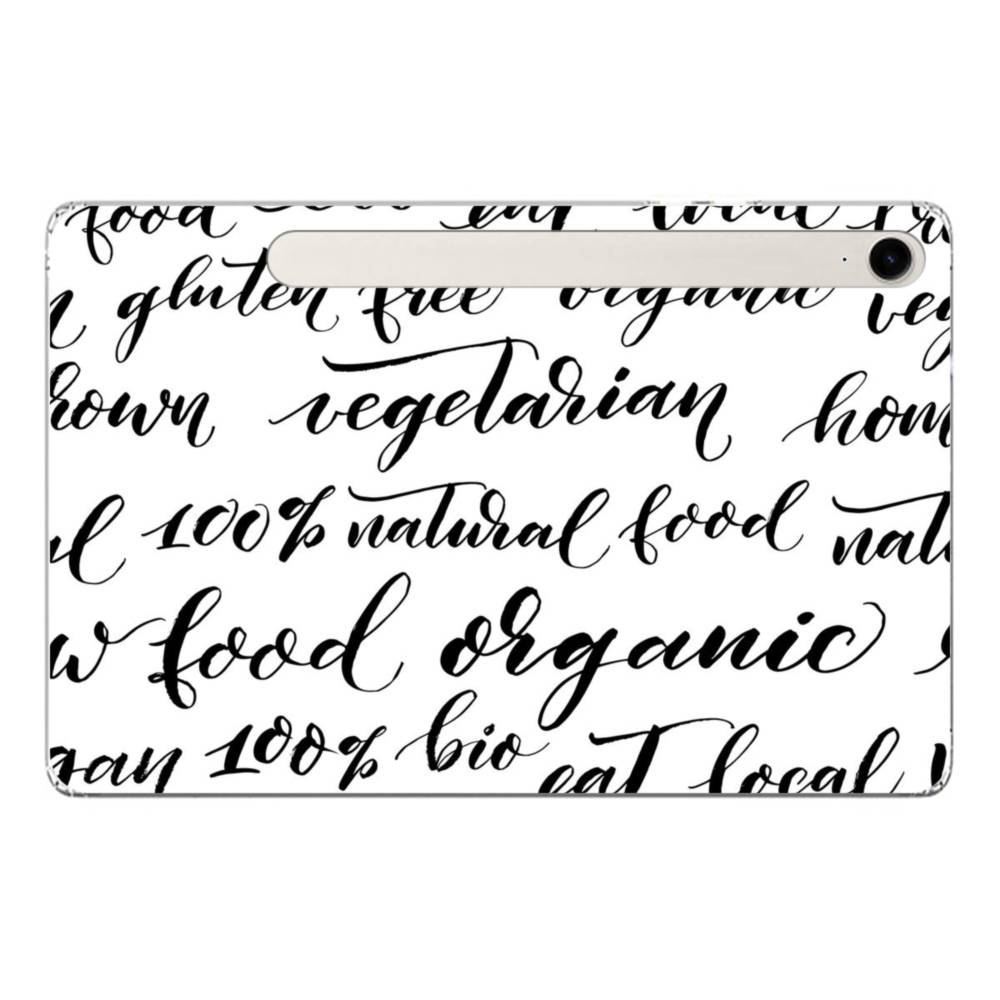 food eat local
gluten free organic veg
rown vegetarian hom
al 100% natural food nat
w food organic
gan 100% bio eat local